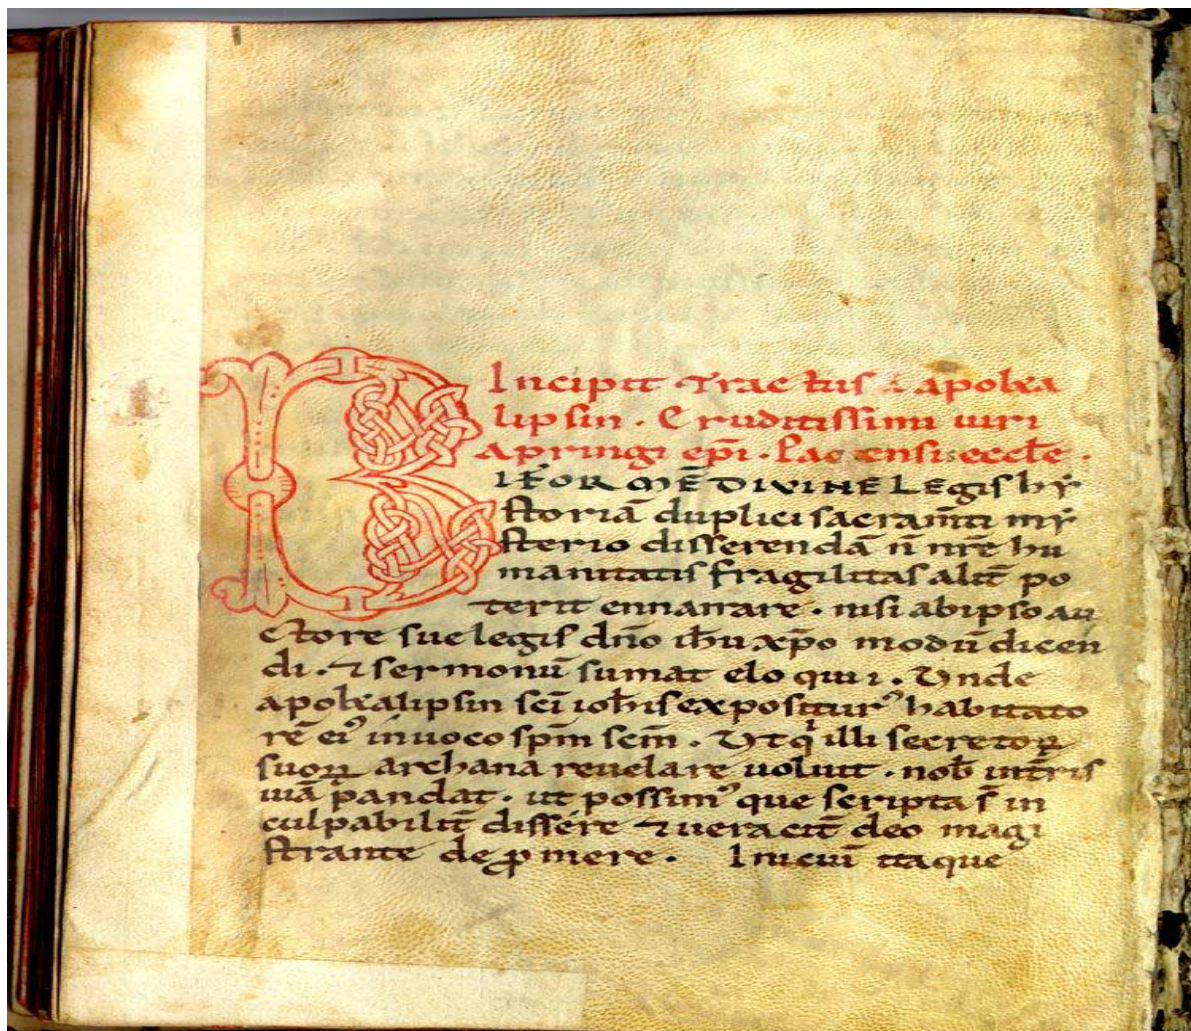 Incipit Tractus i apolxa
lipsin. Eruditissimi uiri
Apringi ep̄i. Pacensis eccl̄e.
BIFORMĒ DIVINE LEgis hẏ
storiā duplici sacram̄ti mẏ
sterio disserendā n̄ nr̄e hu
manitatis fragilitas alit̄ po
terit ennarrare. nisi ab ipso au
ctore sue legis dn̄o ih̄u xp̄o modū dicen
di. ⁊ sermonū sumat eloquii. Unde
apolxalipsin sc̄i ioh̄is expositurꝰ habitato
rē eiꝰ inuoco sp̄m sc̄m. Ut qͥ illi secretoꝝ
suoꝝ archana reuelare uoluit. nob̄ int̄ris
uiā pandat. ut possimꝰ que scripta s̄ in
culpabilit̄ dissēre ⁊ueracit̄ deo magi
strante deꝓmere. Inicuī itaque